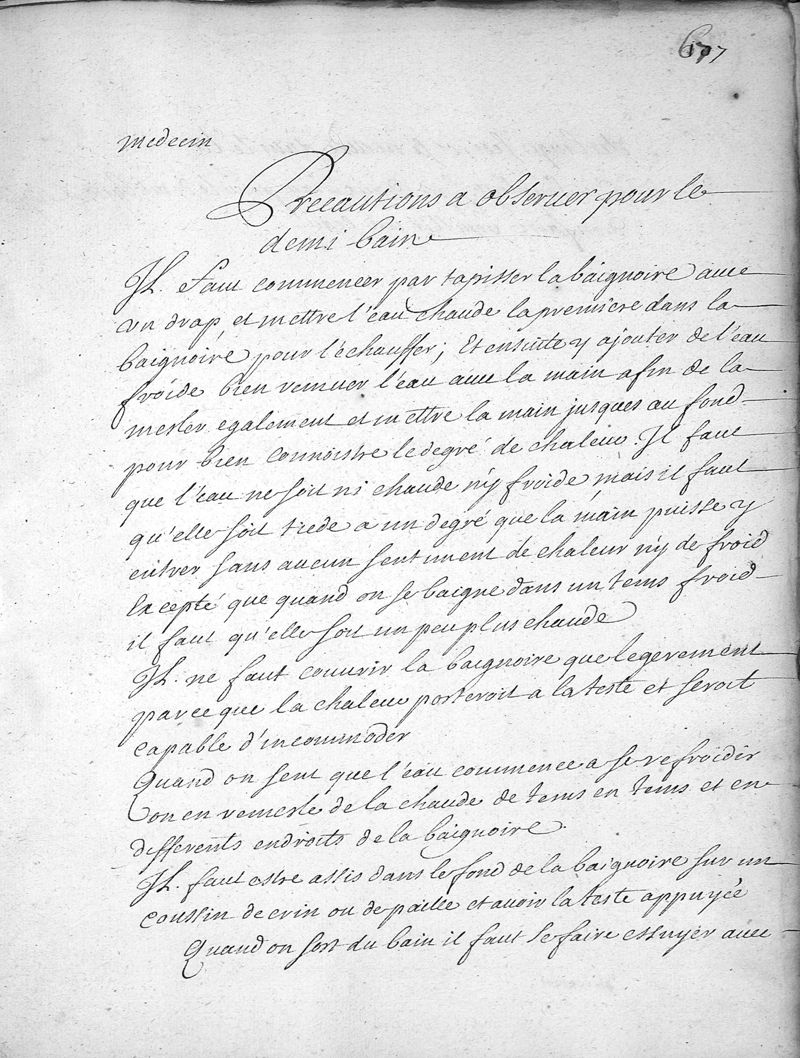 677
medecin
Precautions a obseruer pour le
demi bain
Il faut commencer par tapisser la baignoire auec
un drap, et mettre l'eau chaude la premiere dans la
baignoire pour l'échauffer; Et ensuite y ajouter de l'eau
froide bien remuer l'eau auec la main afin de la
mesler egalement et mettre la main jusques au fond
pour bien connoistre le degré de chaleur. Il faut
que l'eau ne soit ni chaude n'y froide, mais il faut
qu'elle soit tiede a un degré que la main puisse y
entrer sans aucun sentiment de chaleur n'y de froid
Excepté que quand on se baigne dans un tems froid
il faut qu'elle soit un peu plus chaude
Il ne faut couurir la baignoire que legerement
parce que la chaleur porteroit a la teste et seroit
capable d'incommoder
Quand on sent que l'eau commence a se refroidir
on en remesle de la chaude de tems en tems et en
differents endroits de la baignoire.
Il faut estre assis dans le fond de la baignoire sur un
coussin de crin ou de paille et auoir la teste appuyée
Quand on sort du bain il faut se faire essuyer auec